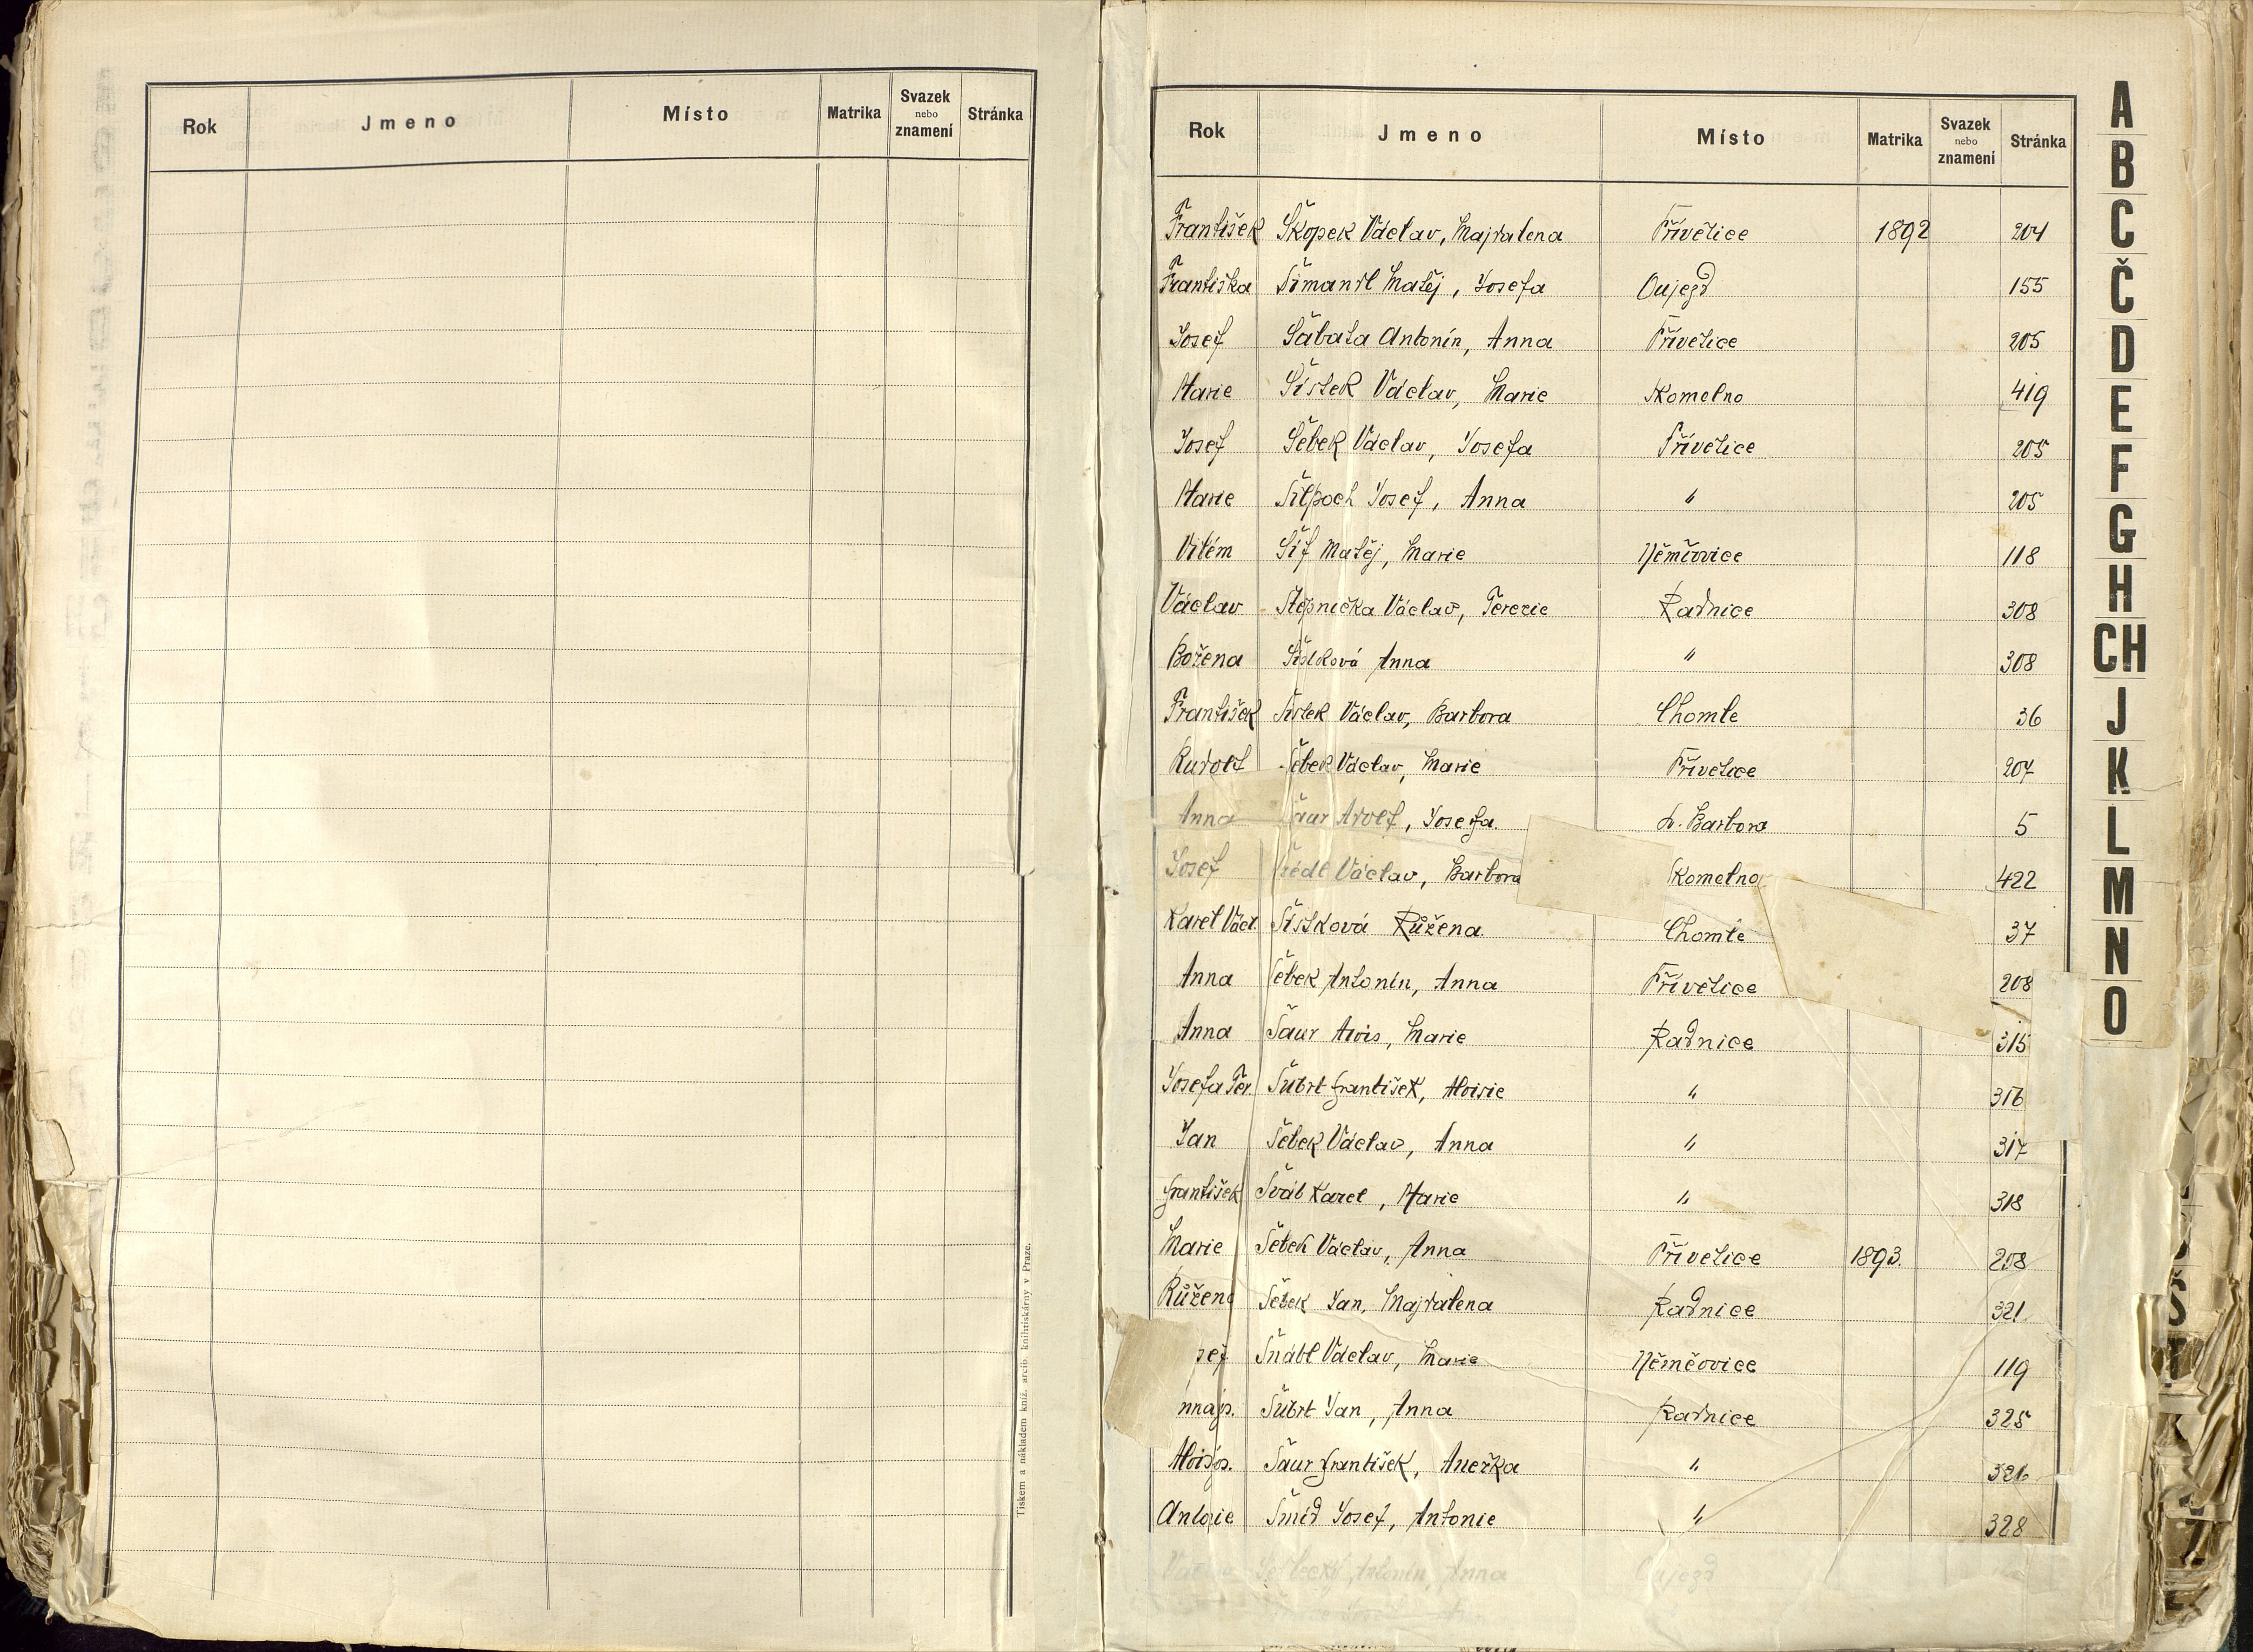 Rok Jmeno Místo Matrika Svazek nebo znamení Stránka
Tiskem a nákladem kníž. arcib. knihtiskárny v Praze.
Rok Jmeno Místo Matrika Svazek nebo znamení Stránka
František Škopek Václav, Majdalena Přívětice 1892 204
Františka Šimandl Matěj, Josefa Oujezd 155
Josef Šabata Antonín, Anna Přívětice 205
Marie Šístek Václav, Marie Skomelno 419
Josef Šebek Václav, Josefa Přívětice 205
Marie Josef, Anna " 205
Vilém Šíf Matěj, Marie Němčovice 118
Václav Štěpnička Václav, Terezie Radnice 308
Božena Anna " 308
František Šístek Václav, Barbora Chomle 36
Rudolf Šebek Václav, Marie Přívětice 207
Anna Šaur Adolf, Josefa S. Barbora 5
Josef Václav, Barbora Skomelno 422
Karel Václ. Šístková Růžena Chomle 37
Anna Šebek Antonín, Anna Přívětice 208
Anna Šaur Alois, Marie Radnice 315
Josefa Ter. Šubrt František, Aloisie " 316
Jan Šebek Václav, Anna " 317
František Šváb Karel, Marie " 318
Marie Šebek Václav, Anna Přívětice 1893. 208
Růžena Šebek Jan, Majdalena Radnice 321
sef Šnábl Václav, Marie Němčovice 119
nna js. Šubrt Jan, Anna Radnice 325
Alois js. Šaur František, Anežka " 326
Antonie Šmíd Josef, Antonie " 328
Antonín, Anna Oujezd
A
B
C
Č
D
E
F
G
H
CH
J
K
L
M
N
O
Š
T